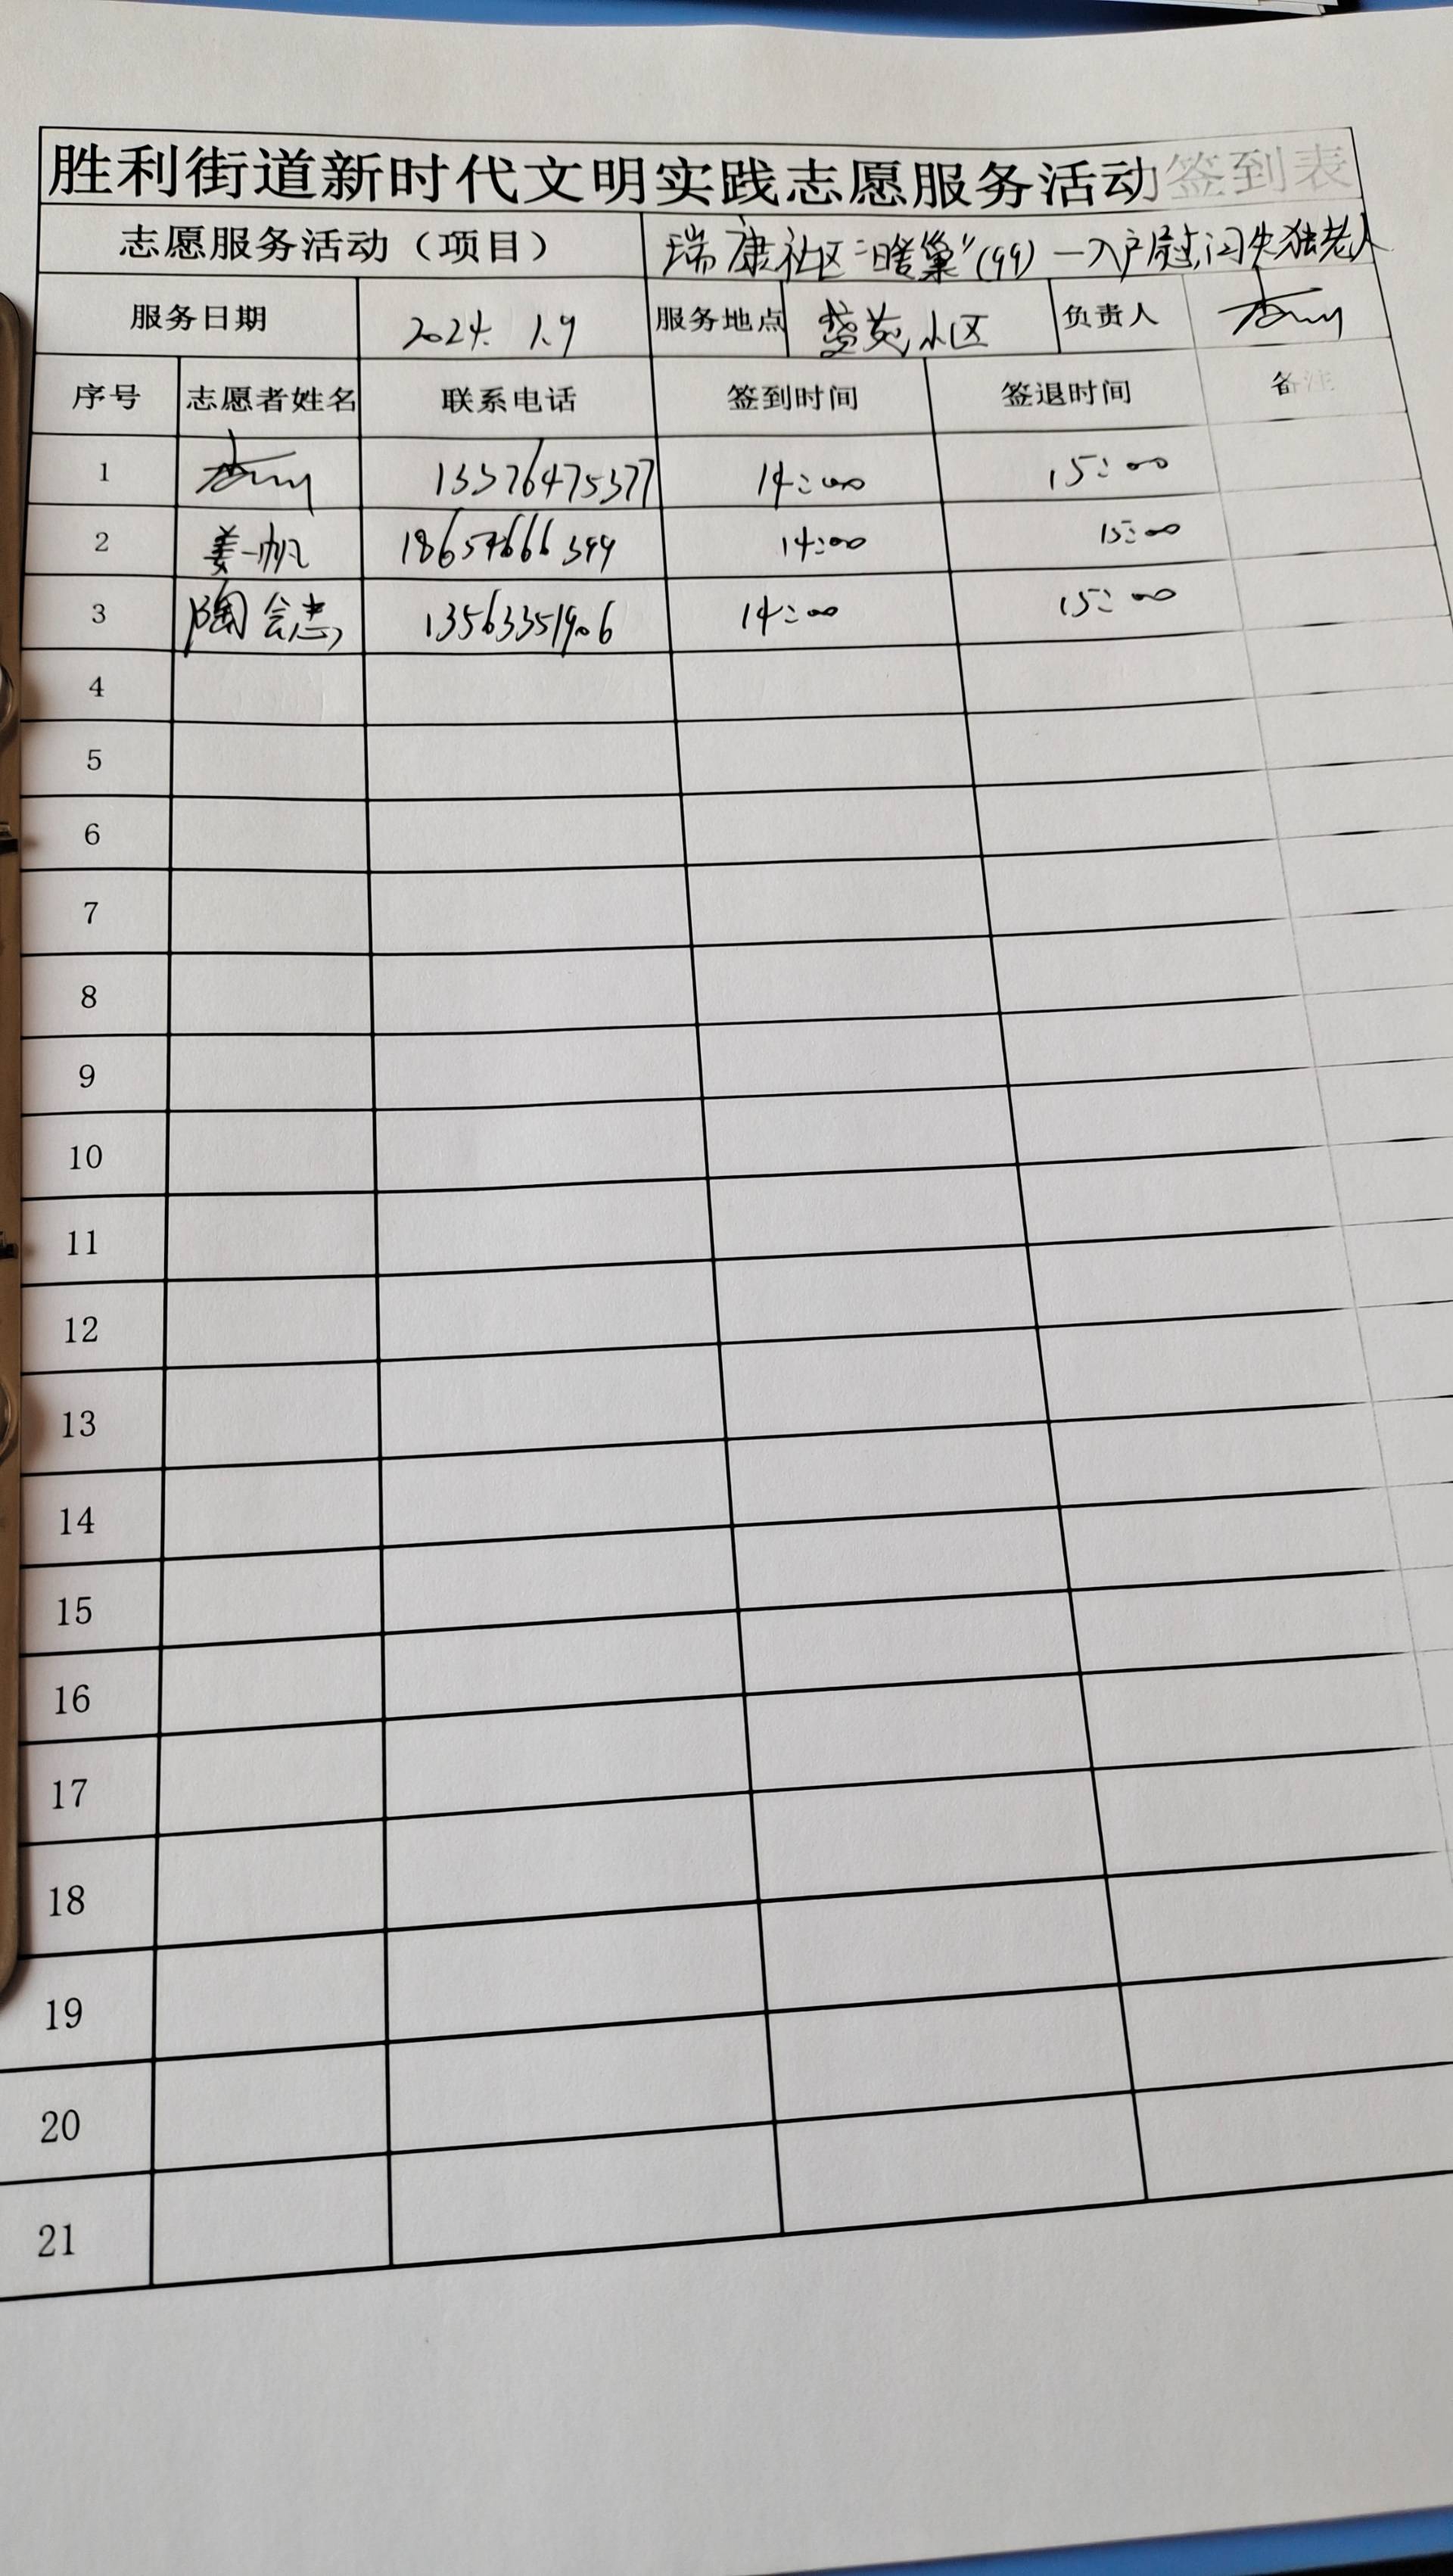 胜利街道新时代文明实践志愿服务活动签到表
志愿服务活动（项目） 瑞康社区“暖巢”(99)—入户慰问失独老人
服务日期 2024. 1.9 服务地点 盛苑小区 负责人
序号 志愿者姓名 联系电话 签到时间 签退时间 备注
1 13376475377 14:00 15:00
2 姜一帆 18654666399 14:00 15:00
3 陶会志 13563351906 14:00 15:00
4
5
6
7
8
9
10
11
12
13
14
15
16
17
18
19
20
21